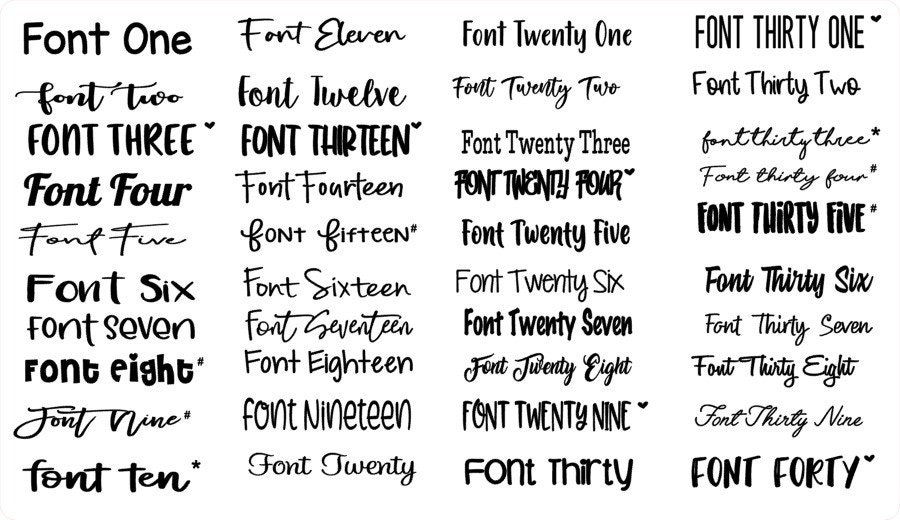 Font One
font two
FONT THREE ❤
Font Four
Font Five
Font Six
Font Seven
Font Eight#
Font Nine#
font ten*
Font Eleven
Font Twelve
FONT THIRTEEN ❤
Font Fourteen
FONT FIFTEEN#
Font Sixteen
Font Seventeen
Font Eighteen
Font Nineteen
Font Twenty
Font Twenty One
Font Twenty Two
Font Twenty Three
FONT TWENTY FOUR ❤
Font Twenty Five
Font Twenty Six
Font Twenty Seven
Font Twenty Eight
FONT TWENTY NINE ❤
Font Thirty
FONT THIRTY ONE ❤
Font Thirty Two
font thirty three*
Font thirty four#
FONT THIRTY FIVE#
Font Thirty Six
Font Thirty Seven
Font Thirty Eight
Font Thirty Nine
FONT FORTY ❤